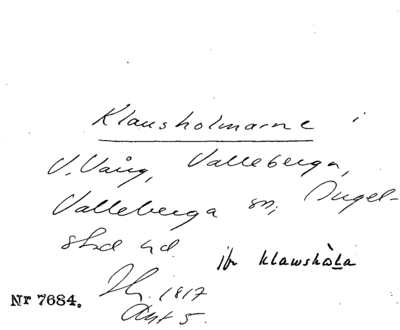 Klausholmarne i
V. Vång, Valleberga,
Valleberga sn, Ingel-
stad hd.
jfr klawshòla
Nr 7684.
1817
Akt 5.